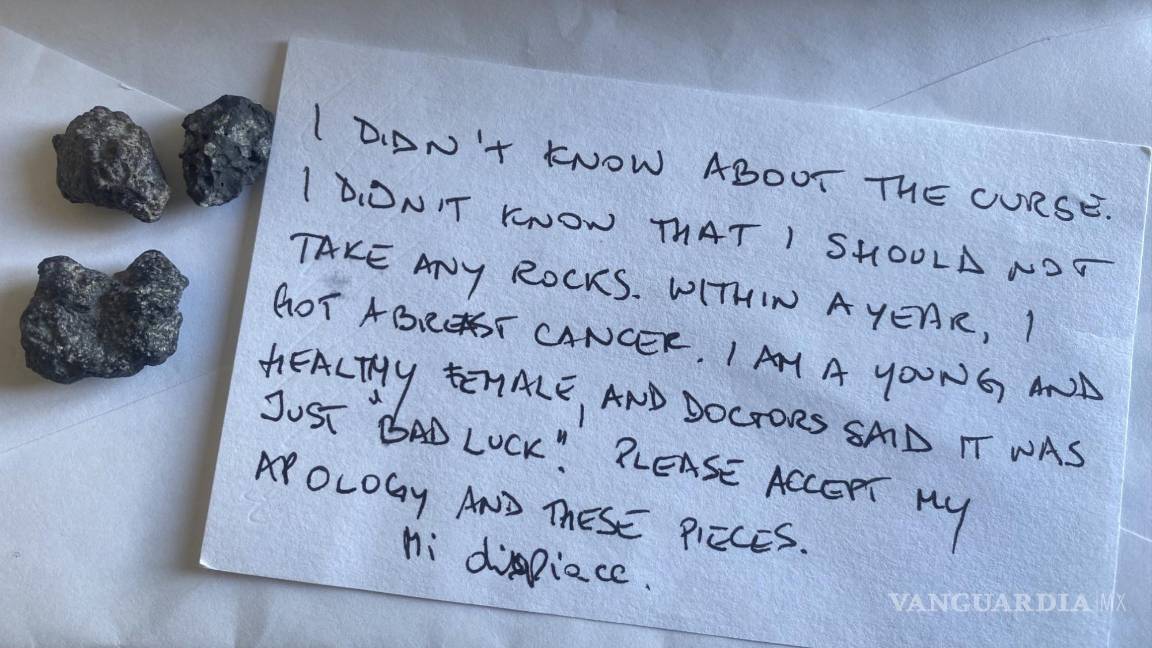 I DIDN'T KNOW ABOUT THE CURSE.
I DIDN'T KNOW THAT I SHOULD NOT
TAKE ANY ROCKS. WITHIN A YEAR, I
GOT A BREAST CANCER. I AM A YOUNG AND
HEALTHY FEMALE, AND DOCTORS SAID IT WAS
JUST "BAD LUCK". PLEASE ACCEPT MY
APOLOGY AND THESE PIECES.
Mi dispiace.
VANGUARDIA MX